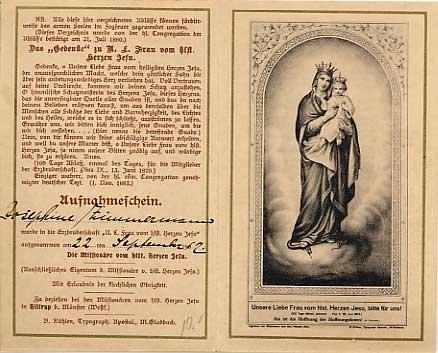 NB. Alle diese hier verzeichneten Ablässe können fürbittweise den armen Seelen im Fegfeuer zugewendet werden.
(Dieses Verzeichnis wurde von der hl. Congregation der
Ablässe bestätigt am 21. Juli 1880.)
Das „Gedenke“ zu U. L. Frau vom hlst.
Herzen Jesu.
Gedenke, o Unsere Liebe Frau vom heiligsten Herzen Jesu, der
unaussprechlichen Macht, welche dein göttlicher Sohn dir
über sein anbetungswürdiges Herz verliehen hat. Voll Vertrauen
auf deine Verdienste, kommen wir deinen Schutz anzuflehen.
O himmlische Schatzmeisterin des Herzens Jesu, dieses Herzens,
das die unversiegbare Quelle aller Gnaden ist, und das du nach
deinem Belieben eröffnen kannst, um aus demselben über die
Menschen alle Schätze der Liebe und Barmherzigkeit, des Lichtes
und des Heiles, welche es in sich schließt, ausströmen zu lassen.
Gewähre uns, wir bitten dich inniglich, jene Gnaden, um die
wir dich anflehen. . . . (hier nenne die betreffende Gnade.)
Nein, von dir können wir keine abschlägige Antwort erhalten,
und weil du unsere Mutter bist, o Unsere liebe Frau vom hlst.
Herzen Jesu, so nimm unsere Bitten gnädig auf, und würdige
dich, sie zu erhören. Amen.
(100 Tage Ablaß, einmal des Tages, für die Mitglieder
der Erzbruderschaft. Pius IX., 13. Juni 1870.)
Einziger wahrer, von der hl. röm. Congregation genehmigter deutscher Text. (1. Nov. 1883.)
Aufnahmeschein.
Josephine Zimmermann
wurde in die Erzbruderschaft „U. L. Frau vom hlst. Herzen Jesu“
aufgenommen am 22 ten September
Die Missionäre vom hlst. Herzen Jesu.
(Ausschließliches Eigentum d. Missionäre v. hlst. Herzen Jesu.)
Mit Erlaubnis der kirchlichen Obrigkeit.
Zu beziehen bei den Missionären vom hlst. Herzen Jesu in
Hiltrup b. Münster (Westf.)
B. Kühlen, Typograph. Apostol. M. Gladbach.
Unsere Liebe Frau vom hlst. Herzen Jesu, bitte für uns!
Sie ist die Hoffnung der Hoffnungslosen!